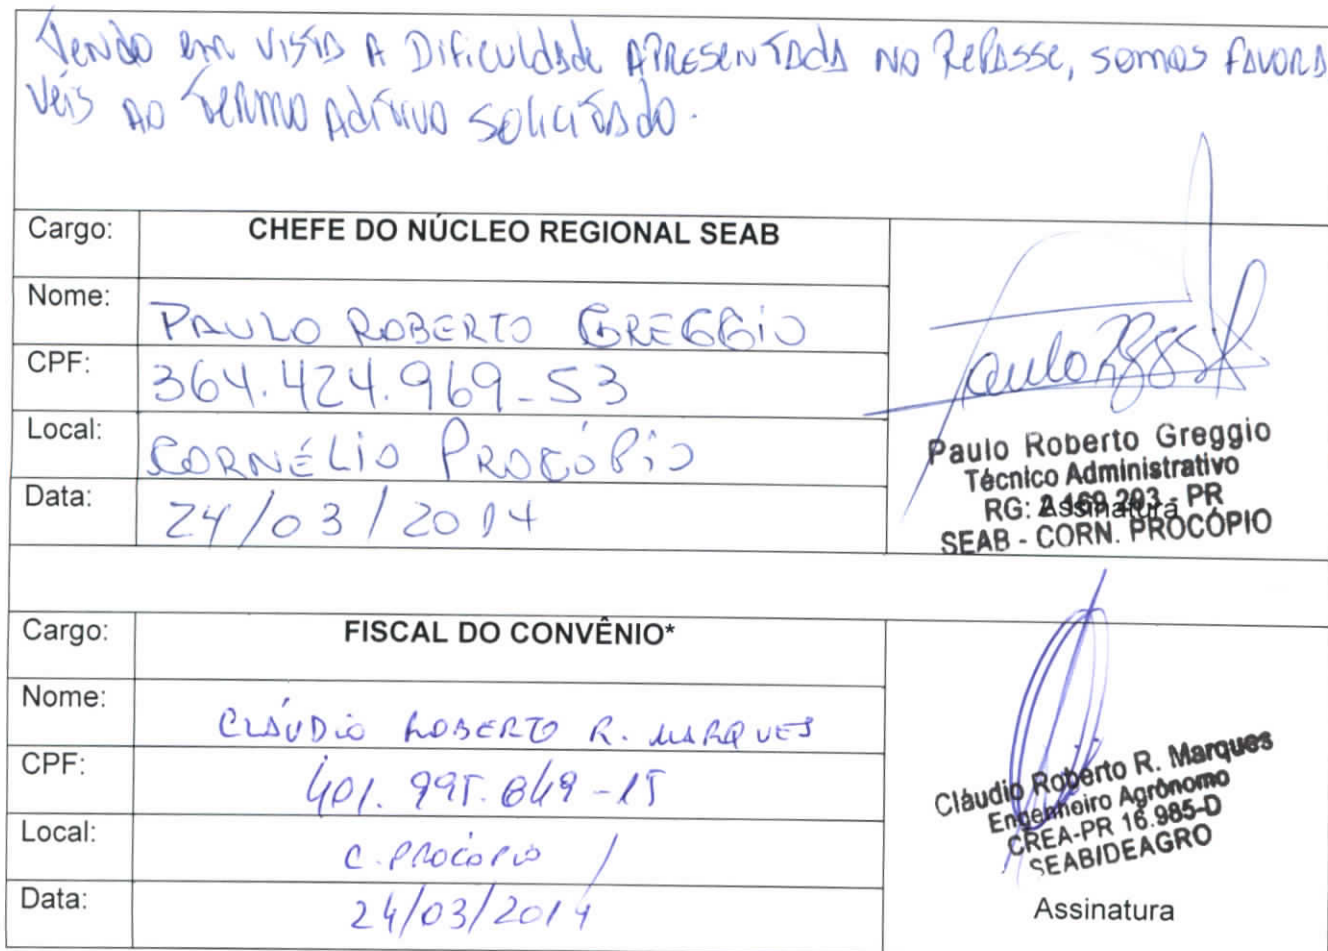 Tendo em vista a Dificuldade APRESENTADA NO Repasse, somos FAVORA
Veis AO Termo Aditivo SOLICITADO.
Cargo: CHEFE DO NÚCLEO REGIONAL SEAB
Nome: PAULO ROBERTO GREGGIO
CPF: 364.424.969-53
Local: CORNÉLIO PROCÓPIO
Data: 24/03/2014
Paulo Roberto Greggio
Técnico Administrativo
RG: 2.469.203 - PR
Assinatura
SEAB - CORN. PROCÓPIO
Cargo: FISCAL DO CONVÊNIO*
Nome: CLÁUDIO ROBERTO R. MARQUES
CPF: 401.995.849-15
Local: C. PROCÓPIO
Data: 24/03/2014
Cláudio Roberto R. Marques
Engenheiro Agrônomo
CREA-PR 16.985-D
SEAB/DEAGRO
Assinatura